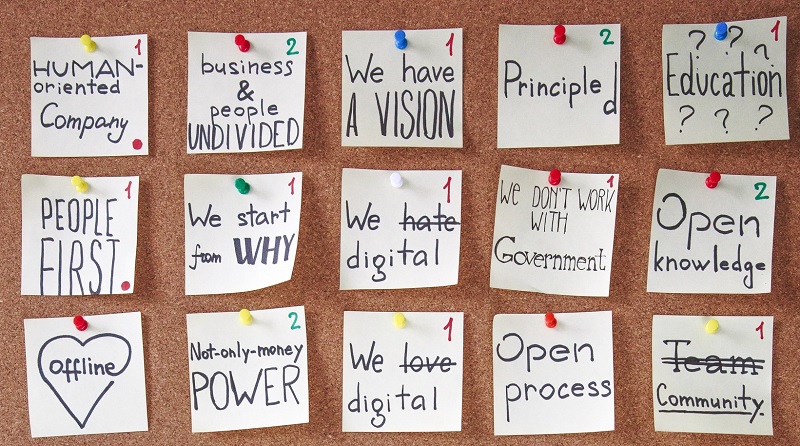 1
HUMAN-
oriented
Company
2
business
&
people
UNDIVIDED
1
We have
A VISION
2
Principled
1
? ? ?
Education
? ? ?
1
PEOPLE
FIRST.
1
We start
from WHY
1
We hate
digital
1
We DON'T WORK
WITH
Government
2
Open
knowledge
Offline
2
Not-only-money
POWER
1
We love
digital
Open
process
1
Team
Community.